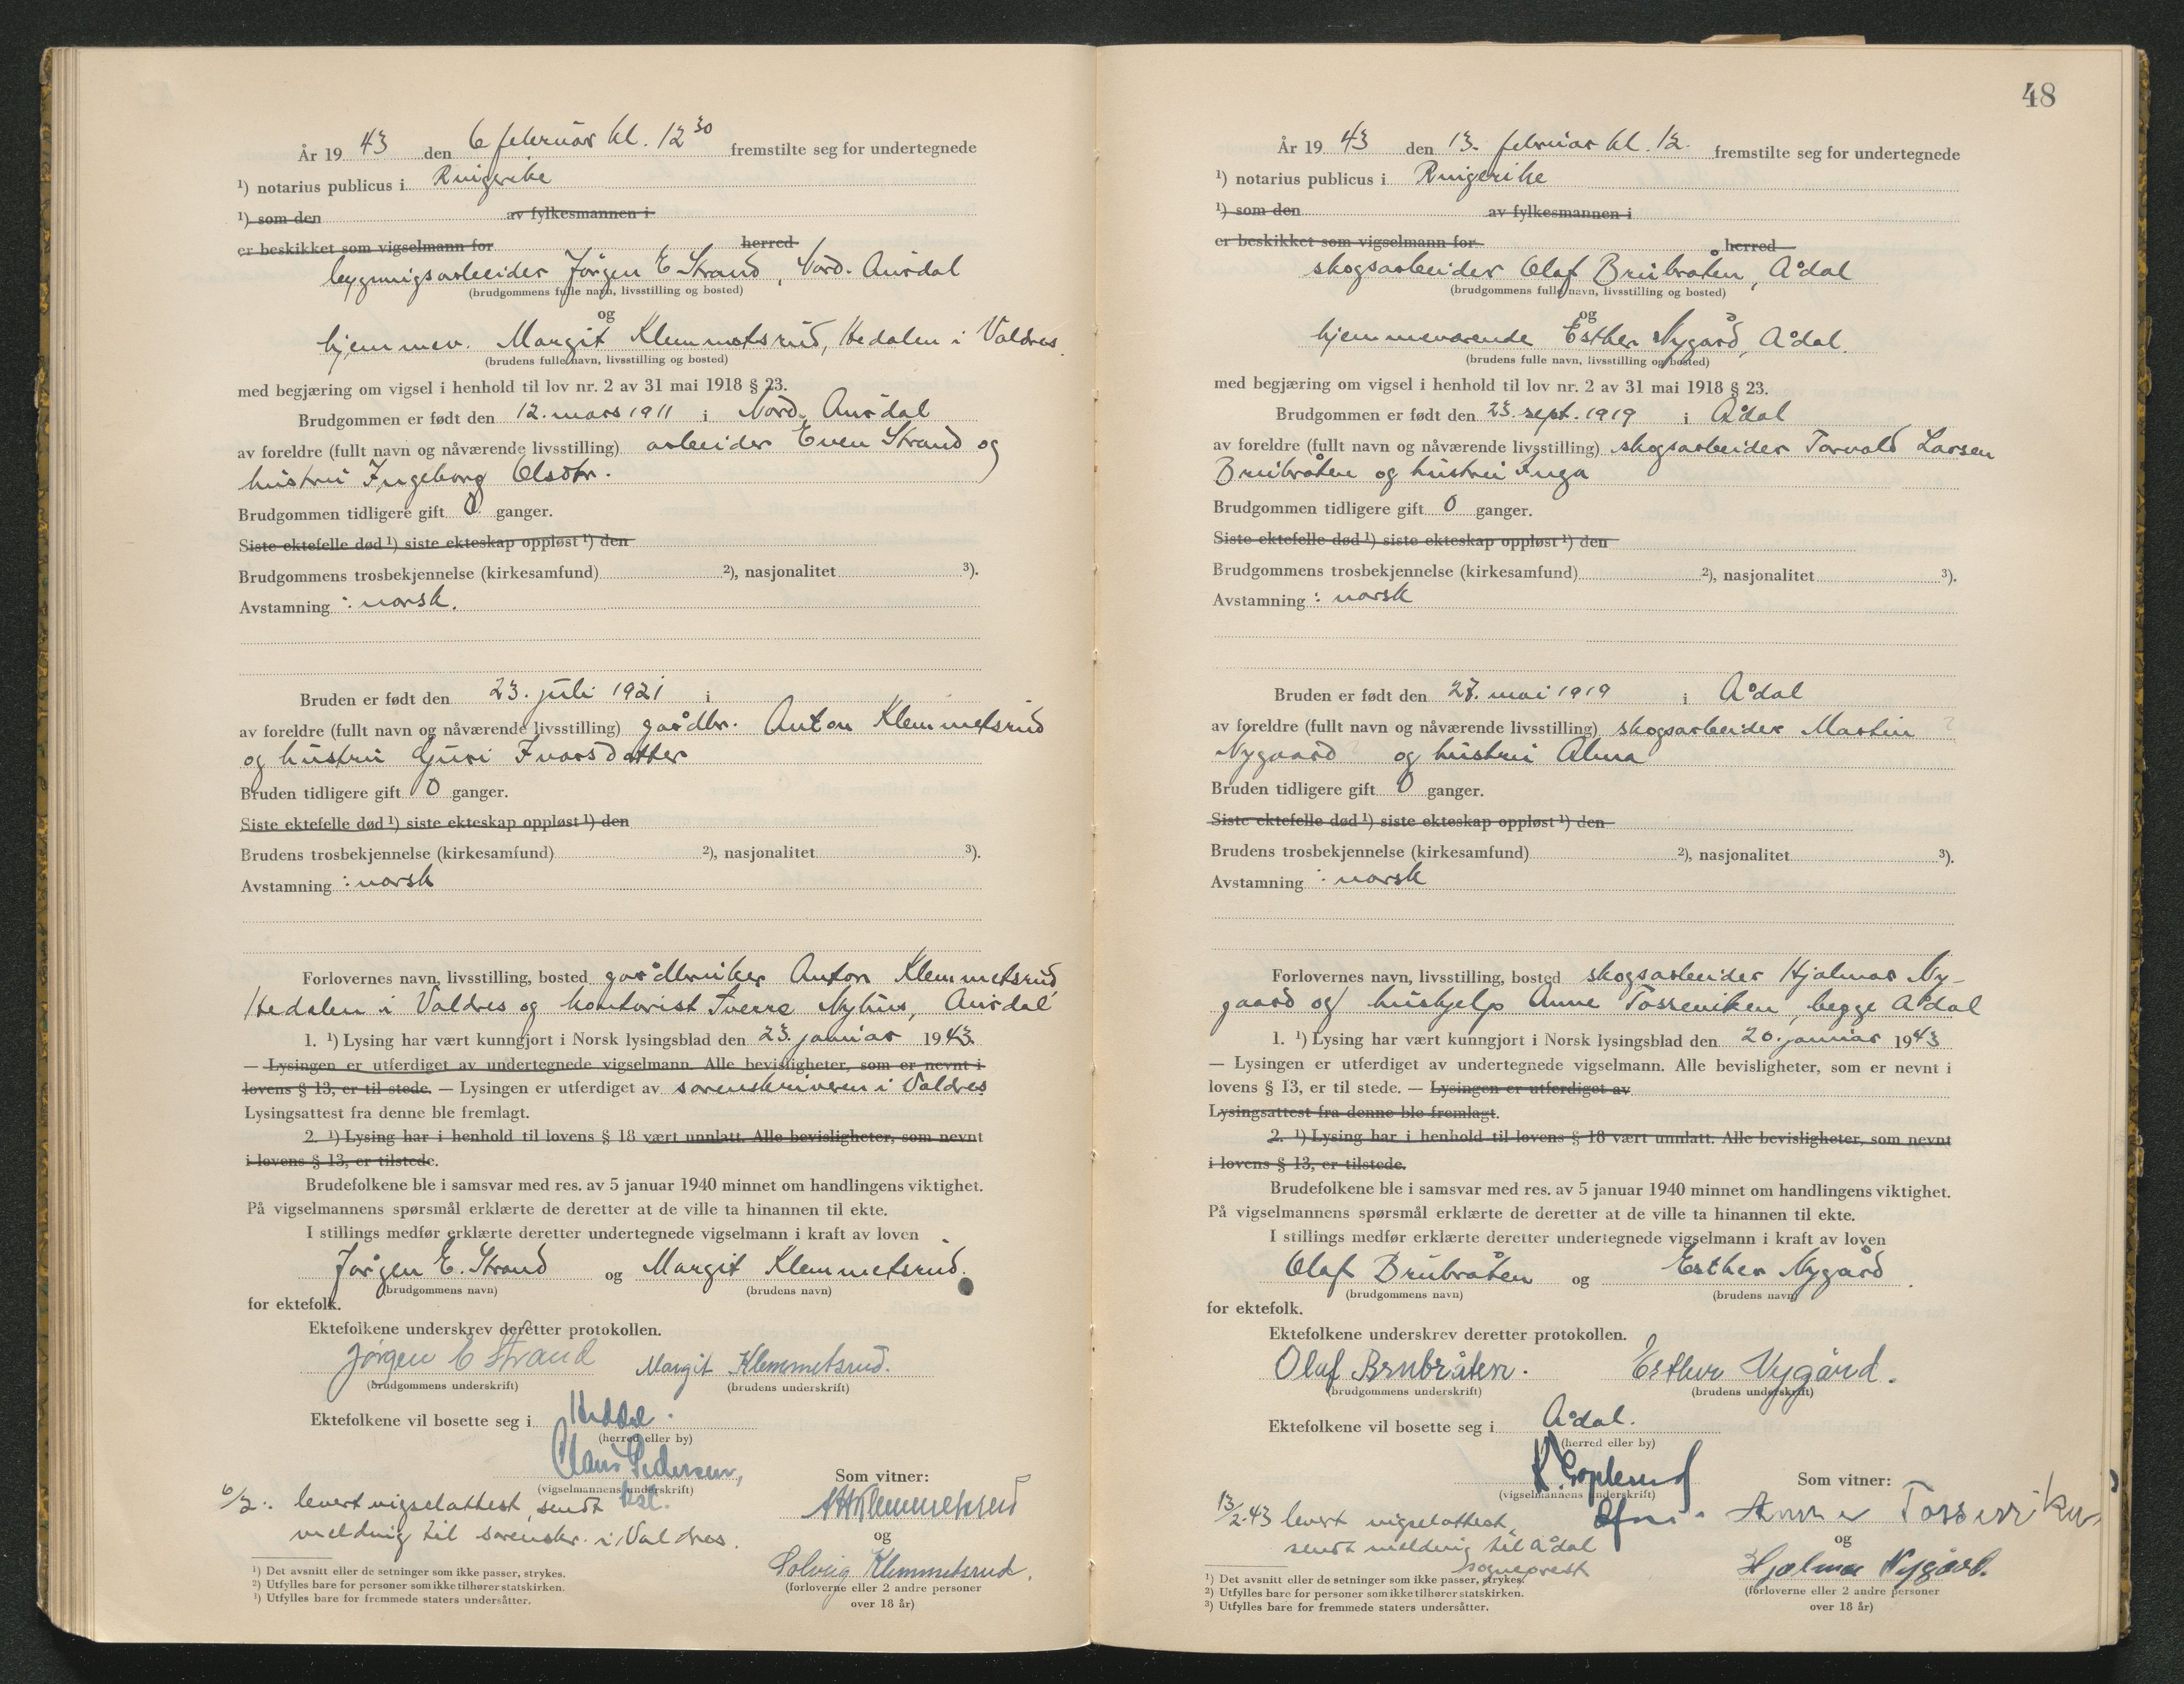 År 19 43 den 6 februar kl. 12 30 fremstilte seg for undertegnede
¹) notarius publicus i Ringerike
¹) som den av fylkesmannen i
er beskikket som vigselmann for herred
bygningsarbeider Jørgen E Strand, Nord-Aurdal
(brudgommens fulle navn, livsstilling og bosted)
og
hjemmev. Margit Klemmetsrud, Hedalen i Valdres.
(brudens fulle navn, livsstilling og bosted)
med begjæring om vigsel i henhold til lov nr. 2 av 31 mai 1918 § 23.
Brudgommen er født den 12. mars 1911 i Nord-Aurdal
av foreldre (fullt navn og nåværende livsstilling) arbeider Even Strand og
hustru Ingeborg Olsdtr.
Brudgommen tidligere gift 0 ganger.
Siste ektefelle død ¹) siste ekteskap oppløst ¹) den
Brudgommens trosbekjennelse (kirkesamfund) ²), nasjonalitet ³).
Avstamning : norsk.
Bruden er født den 23. juli 1921 i
av foreldre (fullt navn og nåværende livsstilling) gårdbr. Anton Klemmetsrud
og hustru Guri Ivarsdatter
Bruden tidligere gift 0 ganger.
Siste ektefelle død ¹) siste ekteskap oppløst ¹) den
Brudens trosbekjennelse (kirkesamfund) ²), nasjonalitet ³).
Avstamning : norsk
Forlovernes navn, livsstilling, bosted gårdbruker Anton Klemmetsrud,
Hedalen i Valdres og kontorist Sverre Nyhus, Aurdal
1. ¹) Lysing har vært kunngjort i Norsk lysingsblad den 23. januar 1943.
— Lysingen er utferdiget av undertegnede vigselmann. Alle bevisligheter, som er nevnt i
lovens § 13, er til stede. — Lysingen er utferdiget av sorenskriveren i Valdres
Lysingsattest fra denne ble fremlagt.
2. ¹) Lysing har i henhold til lovens § 18 vært unnlatt. Alle bevisligheter, som nevnt
i lovens § 13, er tilstede.
Brudefolkene ble i samsvar med res. av 5 januar 1940 minnet om handlingens viktighet.
På vigselmannens spørsmål erklærte de deretter at de ville ta hinannen til ekte.
I stillings medfør erklærte deretter undertegnede vigselmann i kraft av loven
Jørgen E. Strand og Margit Klemmetsrud.
(brudgommens navn) (brudens navn)
for ektefolk.
Ektefolkene underskrev deretter protokollen.
Jørgen E Strand Margit Klemmetsrud.
(brudgommens underskrift) (brudens underskrift)
Ektefolkene vil bosette seg i
(herred eller by)
Claus Pedersen,
(vigselmannens underskrift)
Som vitner:
6/2. levert vigselattest, sendt
melding til sorenskr. i Valdres.
Klemmetsrud
og
Solveig Klemmetsrud.
(forloverne eller 2 andre personer
over 18 år)
¹) Det avsnitt eller de setninger som ikke passer, strykes.
²) Utfylles bare for personer som ikke tilhører statskirken.
³) Utfylles bare for fremmede staters undersåtter.
48
År 19 43 den 13. februar kl. 12. fremstilte seg for undertegnede
¹) notarius publicus i Ringerike
¹) som den av fylkesmannen i
er beskikket som vigselmann for herred
skogsarbeider Olaf Brubråten, Ådal
(brudgommens fulle navn, livsstilling og bosted)
og
hjemmeværende Esther Nygård, Ådal.
(brudens fulle navn, livsstilling og bosted)
med begjæring om vigsel i henhold til lov nr. 2 av 31 mai 1918 § 23.
Brudgommen er født den 23. sept. 1919 i Ådal
av foreldre (fullt navn og nåværende livsstilling) skogsarbeider Torvald Larsen
Brubråten og hustru Inga
Brudgommen tidligere gift 0 ganger.
Siste ektefelle død ¹) siste ekteskap oppløst ¹) den
Brudgommens trosbekjennelse (kirkesamfund) ²), nasjonalitet ³).
Avstamning : norsk
Bruden er født den 27. mai 1919 i Ådal
av foreldre (fullt navn og nåværende livsstilling) skogsarbeider Martin
Nygaard og hustru Alma
Bruden tidligere gift 0 ganger.
Siste ektefelle død ¹) siste ekteskap oppløst ¹) den
Brudens trosbekjennelse (kirkesamfund) ²), nasjonalitet ³).
Avstamning : norsk
Forlovernes navn, livsstilling, bosted skogsarbeider Hjalmar Ny-
gaard og hushjelp Anne Tosseviken, begge Ådal
1. ¹) Lysing har vært kunngjort i Norsk lysingsblad den 20. januar 1943
— Lysingen er utferdiget av undertegnede vigselmann. Alle bevisligheter, som er nevnt i
lovens § 13, er til stede. — Lysingen er utferdiget av
Lysingsattest fra denne ble fremlagt.
2. ¹) Lysing har i henhold til lovens § 18 vært unnlatt. Alle bevisligheter, som nevnt
i lovens § 13, er tilstede.
Brudefolkene ble i samsvar med res. av 5 januar 1940 minnet om handlingens viktighet.
På vigselmannens spørsmål erklærte de deretter at de ville ta hinannen til ekte.
I stillings medfør erklærte deretter undertegnede vigselmann i kraft av loven
Olaf Brubråten og Esther Nygård.
(brudgommens navn) (brudens navn)
for ektefolk.
Ektefolkene underskrev deretter protokollen.
Olaf Brubråten. Esther Nygård.
(brudgommens underskrift) (brudens underskrift)
Ektefolkene vil bosette seg i Ådal.
(herred eller by)
(vigselmannens underskrift)
Som vitner:
13/2-43 levert vigselattest,
sendt melding til Ådal
sogneprest
Anne Tosseviken
og
Hjalmar Nygård.
(forloverne eller 2 andre personer
over 18 år)
¹) Det avsnitt eller de setninger som ikke passer, strykes.
²) Utfylles bare for personer som ikke tilhører statskirken.
³) Utfylles bare for fremmede staters undersåtter.